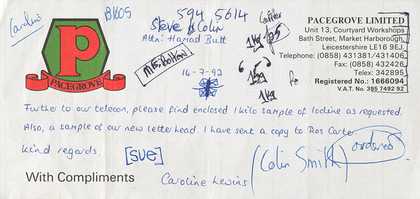 Caroline
BKOS
594 5614
Steve & Colin
Attn: Hamad Butt
MR. Bolton
16-7-92
1kg
1kg
P
PACEGROVE
PACEGROVE LIMITED
Unit 13, Courtyard Workshops
Bath Street, Market Harborough,
Leicestershire LE16 9EJ.
Telephone: (0858) 431381/431406,
Fax: (0858) 432426
Telex: 342895
Registered No.: 1666094
V.A.T. No. 385 7492 92
Further to our telecon, please find enclosed 1 kilo sample of Iodine as requested.
Also, a sample of our new letter head I have sent a copy to Ros Carter
Kind regards.
[SUE]
(Colin Smith)
ordered
With Compliments
Caroline Lewins